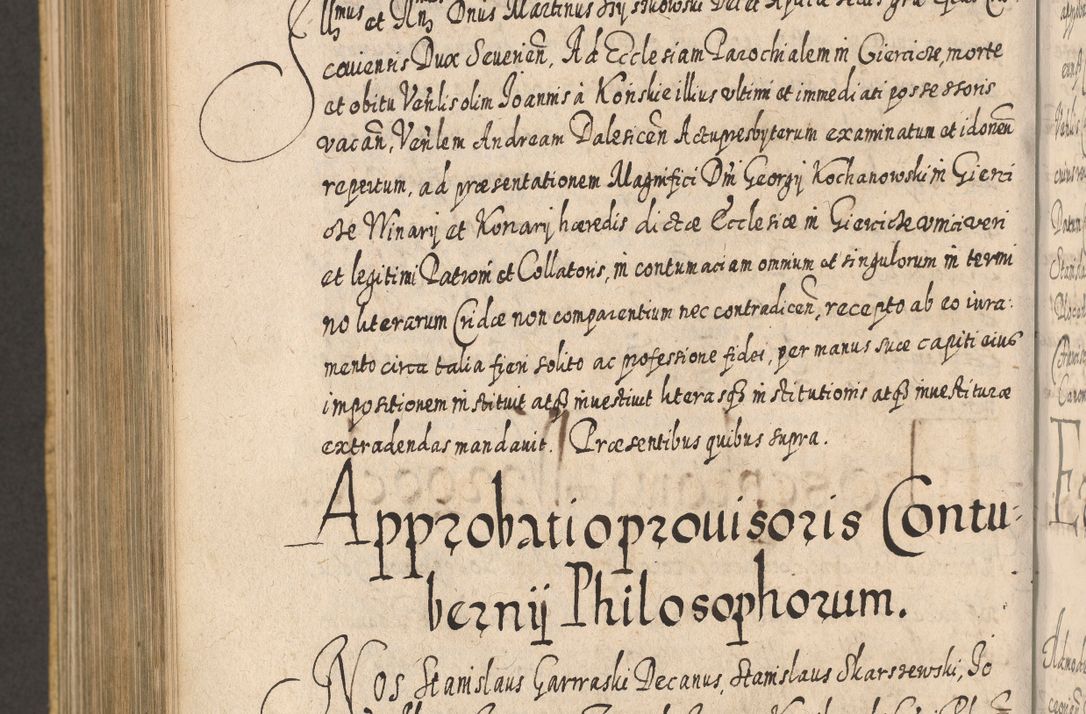 Illmus et Rn̄s Dnus Martinus Szyszkowski Dei et Aplicæ Sedis gra Epus Cra
couiensis Dux Seueriēn, Ad Ecclesiam Parochialem in Gierciċze, morte
et obitu Veńlis olim Joannis à Końskie illius vltimi et immediati possessoris
vacan̄, Veńlem Andream Dalesicen̄ Actupresbyterum examinatum et idoneū
repertum, ad præsentationem Magnifici Dn̄i Georgij Kochanowski in Gierci
cze Winary et Konary hæredis dictæ Ecclesiæ in Giercicze vnici veri
et legitimi Patroni et Collatoris, in contumaciam omnium et singulorum in termi
no literarum Cridæ non comparentium nec contradicen̄, recepto ab eo iura:
mento circa talia fieri solito ac professione fidei, per manus suæ capiti eius
impositionem instituit atq̃ inuestiuit literasq̃ institutionis atq̃ inuestituræ
extradendas mandauit. Præsentibus quibus supra.
Approbatio prouisoris Contu:
bernij Philosophorum.
Nos Stanislaus Garwaski Decanus, Stanislaus Skarszewski, Jo